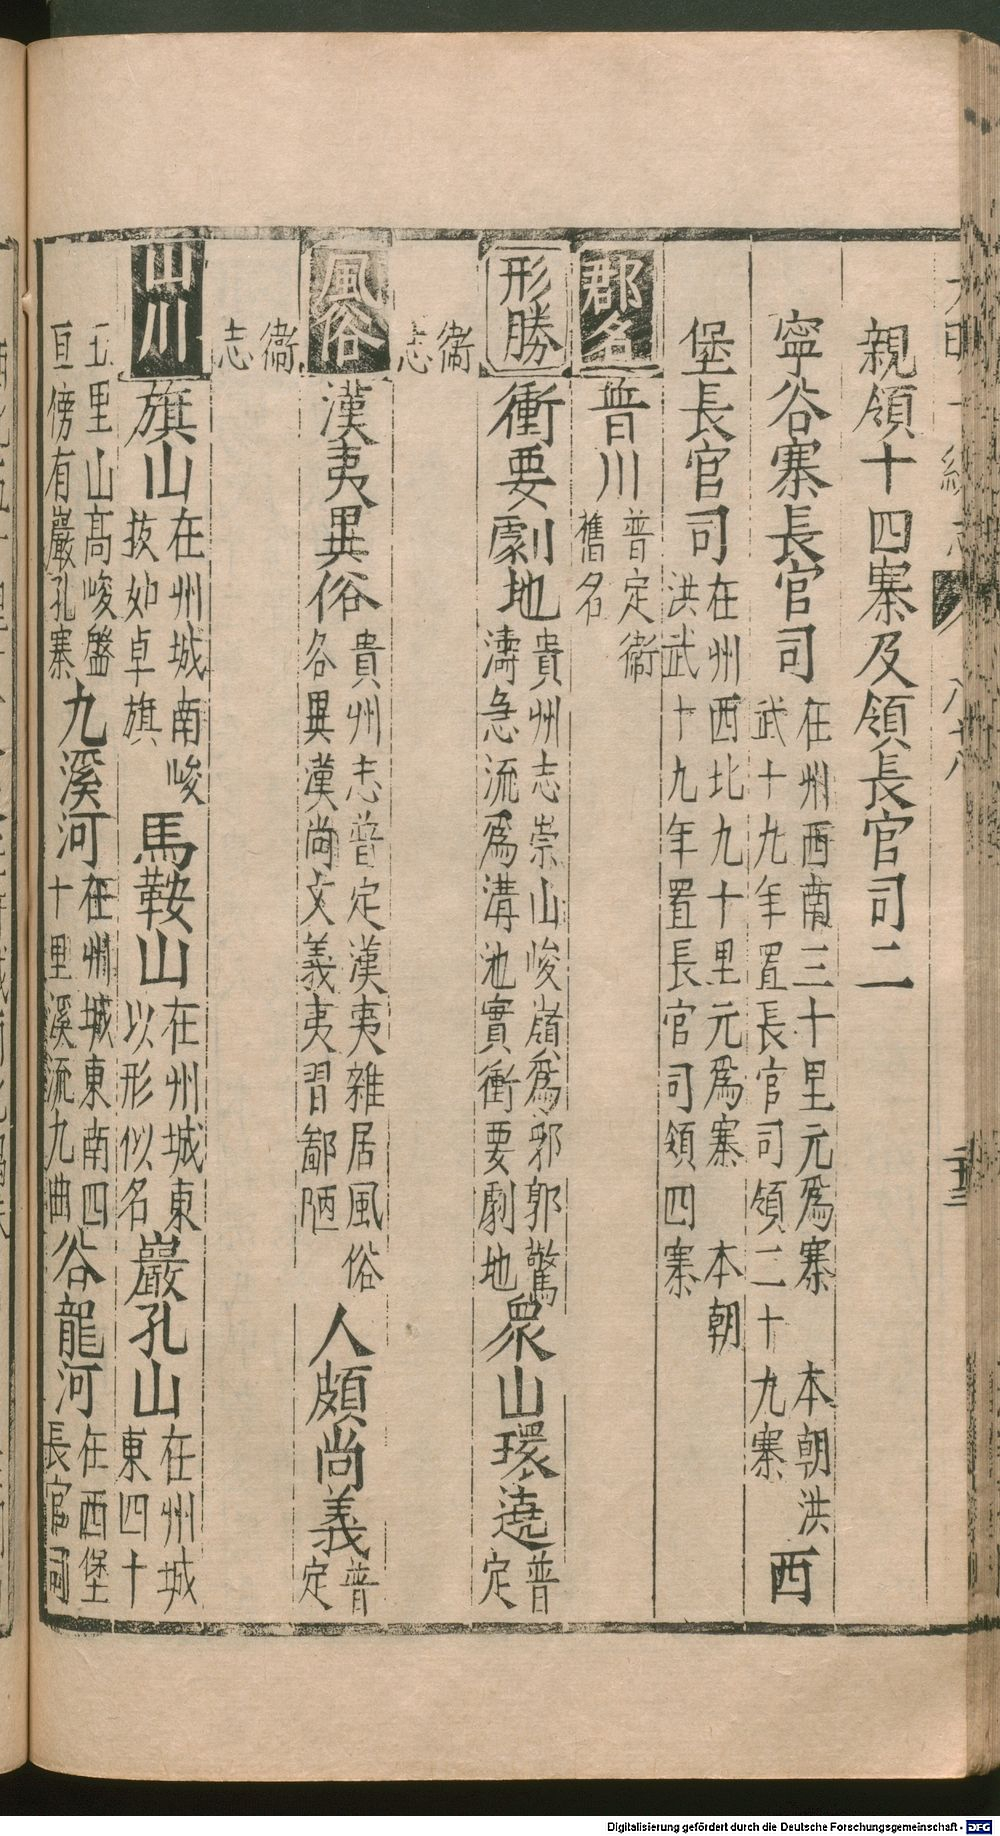 親領十四寨及領長官司二
寧谷寨長官司在州西南三十里元爲寨 本朝洪武十九年置長官司領二十九寨西
堡長官司在州西北九十里元爲寨 本朝洪武十九年置長官司領四寨
郡名普川普定衛舊名
形勝衝要劇地貴州志崇山峻嶺爲郛郭驚濤急流爲溝池實衝要劇地眾山環遶普定
衛志
風俗漢夷異俗貴州志普定漢夷雜居風俗各異漢尚文義夷習鄙陋人頗尚義普定
衛志
山川旗山在州城南峻拔如卓旗馬鞍山在州城東以形似名巖孔山在州城東四十
五里山高峻盤亘傍有巖孔寨九溪河在州城東南四十里溪流九曲谷龍河在西堡長官司
Digitalisierung gefördert durch die Deutsche Forschungsgemeinschaft - DFG